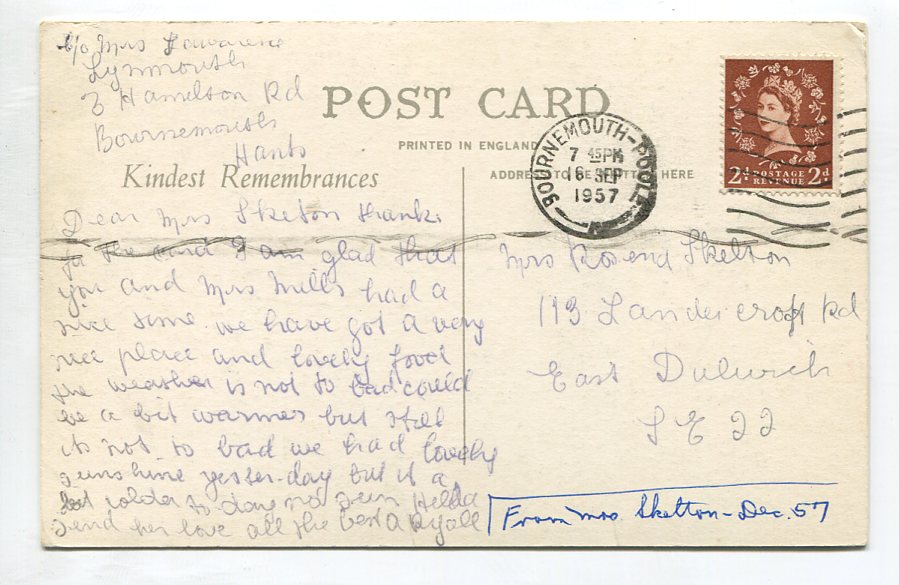 c/o Mrs Lawarence
Lynmouth
3 Hamelton Rd
Bournemouth
Hants
POST CARD
PRINTED IN ENGLAND
Kindest Remembrances
ADDRESS TO BE WRITTEN HERE
BOURNEMOUTH-POOLE
7 45PM
16 SEP
1957
2D POSTAGE REVENUE 2D
Dear Mrs Skelton thanks
for the card I am glad that
you and Mrs Mills had a
nice time. we have got a very
nice place and lovely food
the weather is not to bad could
be a bit warmer but still
its not to bad we had lovely
sunshine yester-day but it a
colder to day no sun Hilda
send her love all the best A
Mrs Rosend Skelton
113 Landercroft Rd
East Dulwich
S E 22
From Mrs Skelton - Dec. 57